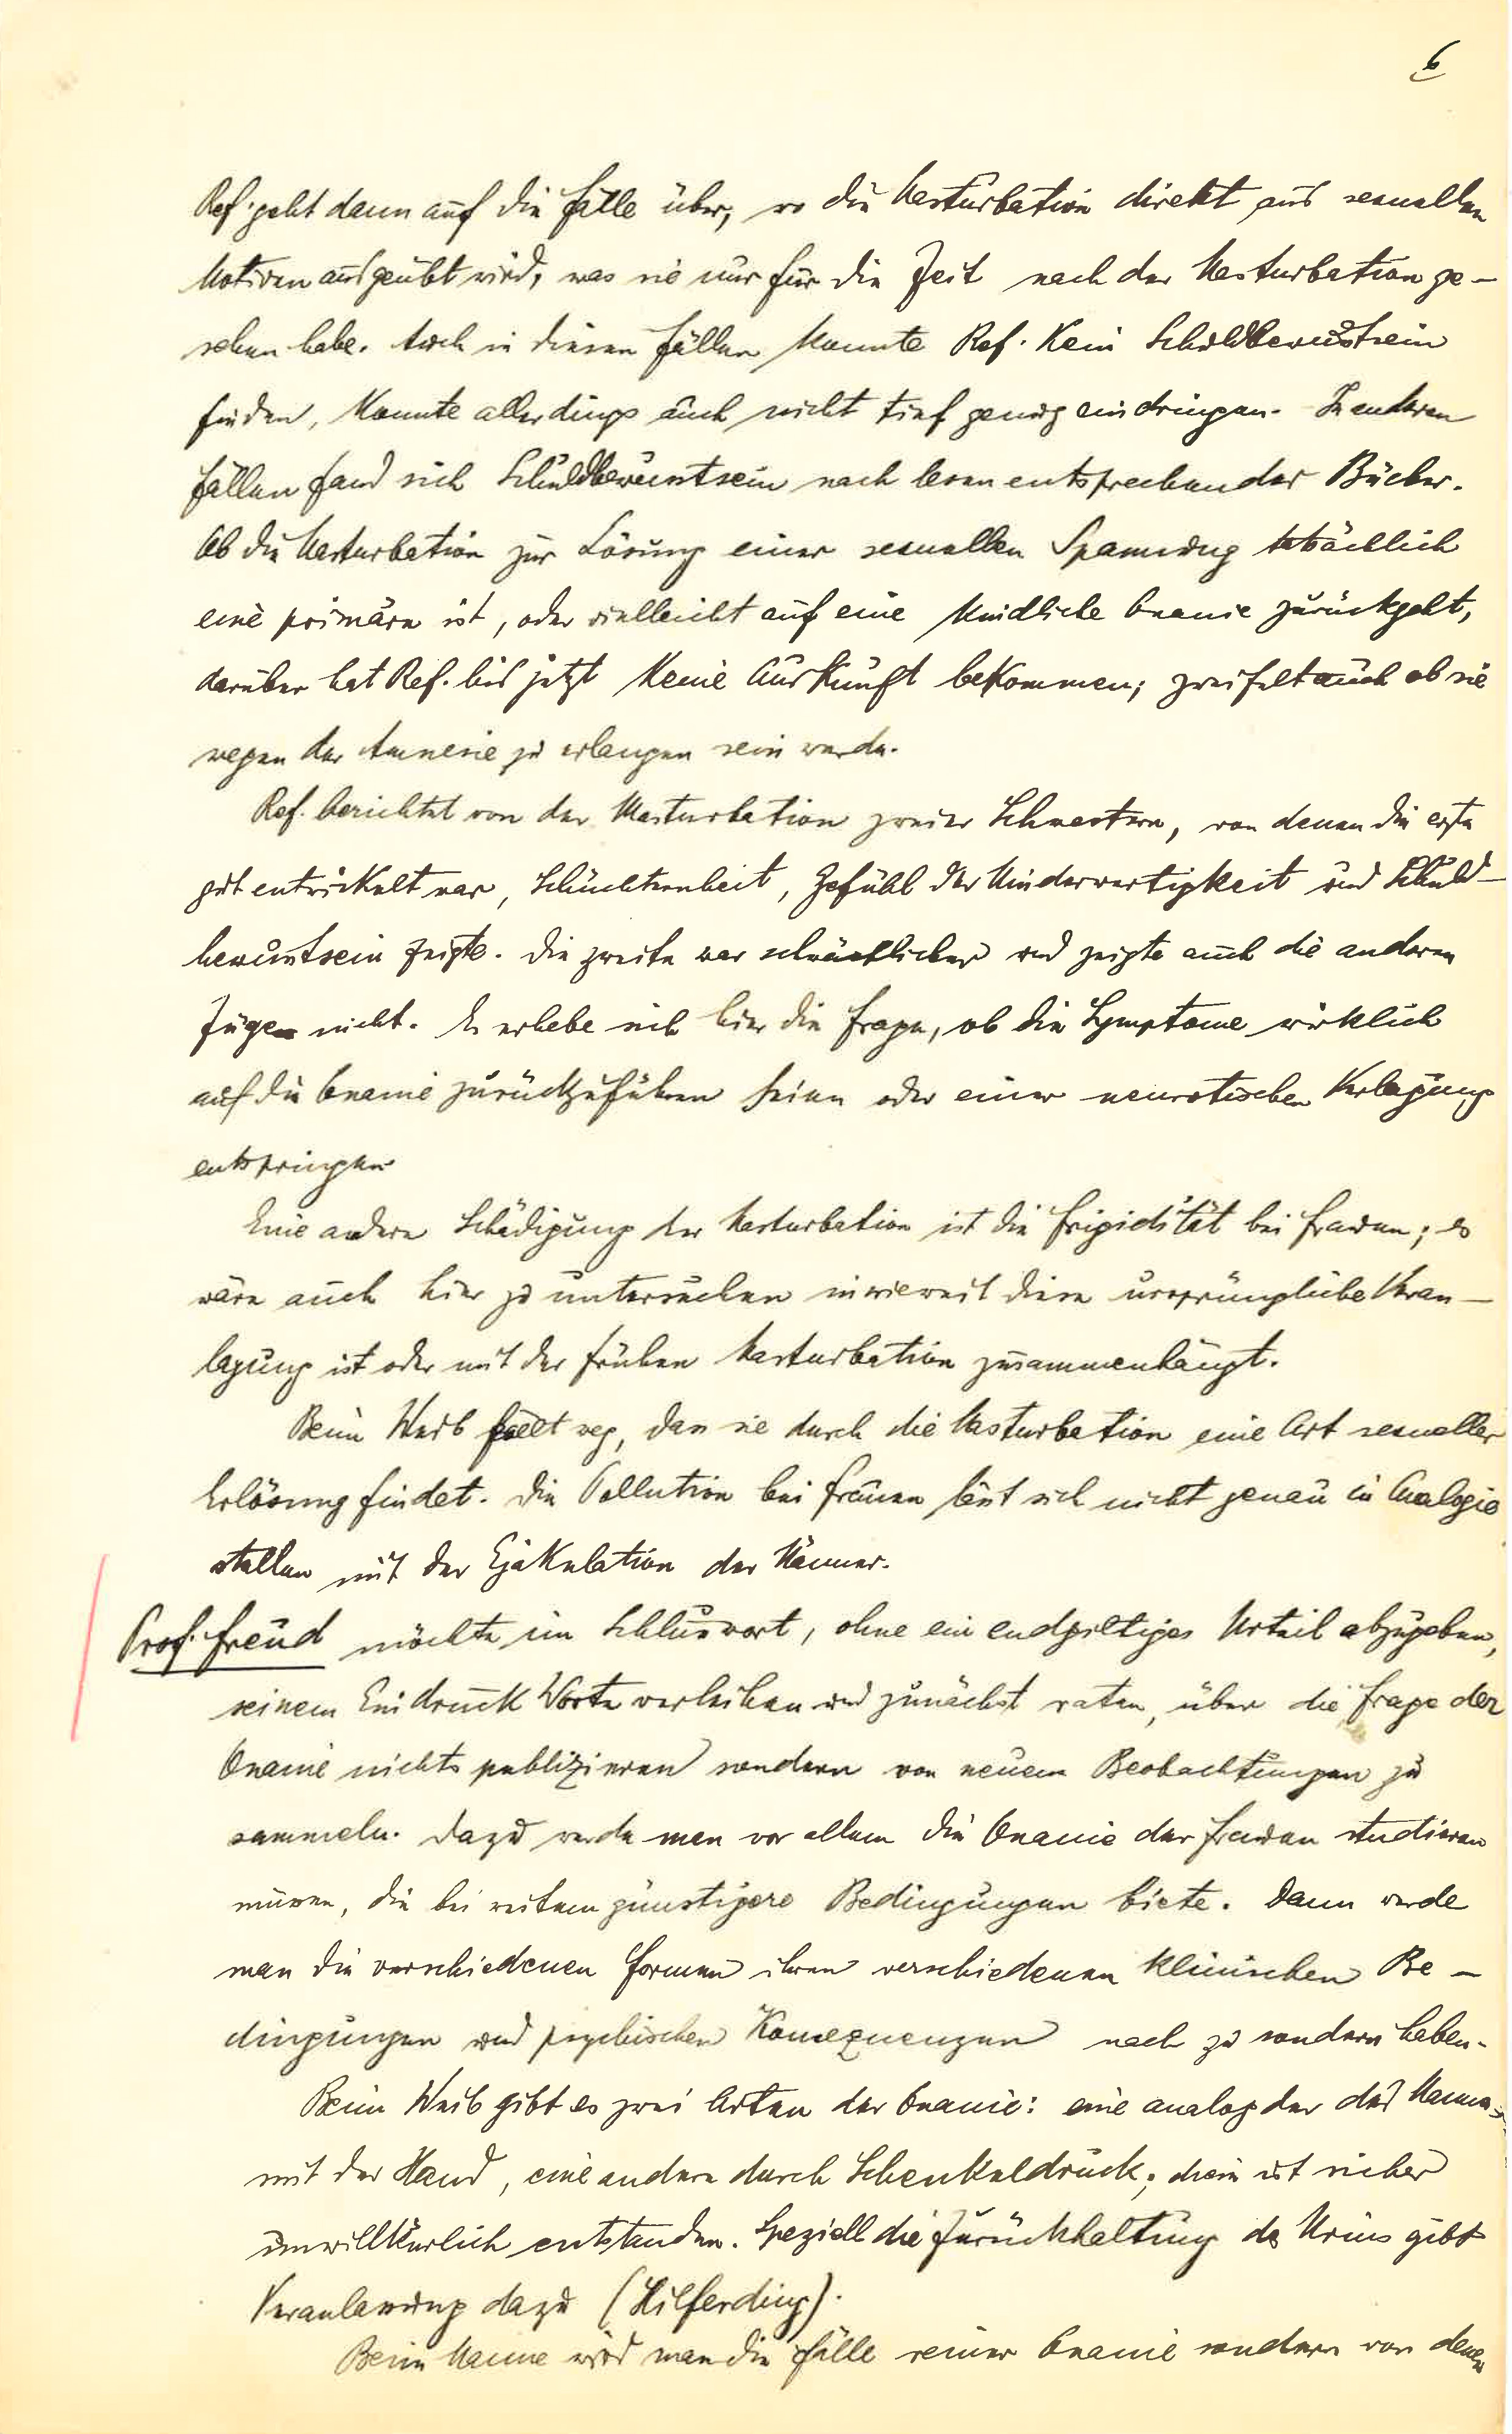 6
Ref. geht dann auf die Fälle über, wo die Masturbation direkt aus sexuellen
Motiven ausgeübt wird, was sie nur für die Zeit nach der Masturbation ge-
sehen habe. Auch in diesen Fällen konnte Ref. kein Schuldbewusstsein
finden, konnte allerdings auch nicht tief genug eindringen. In anderen
Fällen fand sich Schuldbewusstsein nach lesen entsprechender Bücher.
Ob die Masturbation zur Lösung einer sexuellen Spannung tatsächlich
eine primäre ist, oder vielleicht auf eine kindliche Onanie zurückgeht,
darüber hat Ref. bis jetzt keine Auskunft bekommen; zweifelt auch ob sie
wegen der Amnesie zu erlangen sein werde.
Ref. berichtet von der Masturbation zweier Schwestern, von denen die erste
gut entwickelt war, Schüchternheit, Gefühl der Minderwertigkeit und Schuld-
bewusstsein zeigte. Die zweite war schwächlicher und zeigte auch die anderen
Züge nicht. Es erhebe sich hier die Frage, ob die Symptome wirklich
auf die Onanie zurückzuführen seien oder einer neurotischen Verlagung
entspringen
Eine andere Schädigung der Masturbation ist die Frigidität bei Frauen; es
wäre auch hier zu untersuchen inwieweit diese ursprüngliche Veran-
lagung ist oder mit der frühen Masturbation zusammenhängt.
Beim Weib fällt weg, dass sie durch die Masturbation eine Art sexueller
Erlösung findet. Die Pollution bei Frauen lässt sich nicht genau in Analogie
stellen mit der Ejakulation der Männer.
Prof. Freud möchte im Schlusswort, ohne ein endgiltiges Urteil abzugeben,
seinem Eindruck Worte verleihen und zunächst raten, über die Frage der
Onanie nichts publizieren sondern von neuem Beobachtungen zu
sammeln. Dazu werde man vor allem die Onanie der Frauen studieren
müssen, die bei weitem günstigere Bedingungen biete. Dann werde
man die verschiedenen Formen ihren verschiedenen klinischen Be-
dingungen und psychischen Konsequenzen nach zu sondern haben.
Beim Weib gibt es zwei Arten der Onanie: eine analog der des Mannes
mit der Hand, eine andere durch Schenkeldruck; diese ist sicher
unwillkürlich entstanden. Speziell die Zurückhaltung des Urins gibt
Veranlassung dazu (Hilferding).
Beim Manne wird man die Fälle reiner Onanie sondern von denen